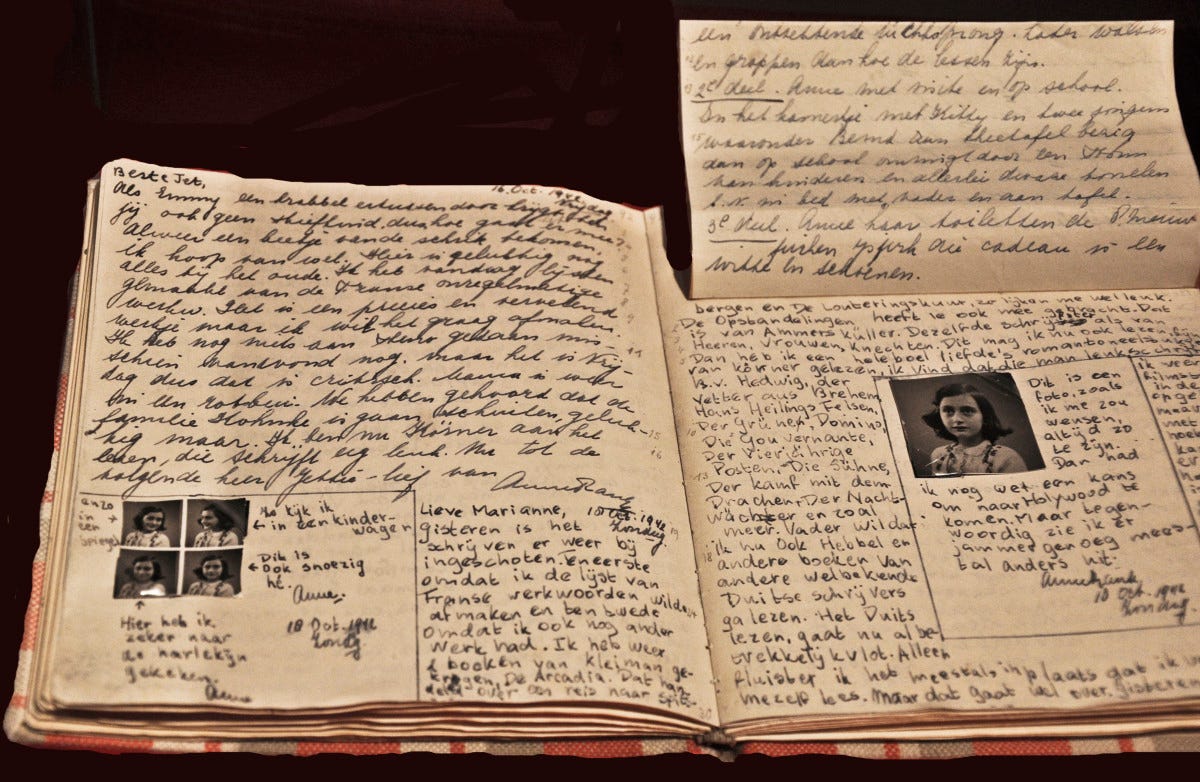 Beste Jet,
16. Oct. 1942
Als Emmy een krabbel ertussen door krijgt
jij ook geen
Alweer een beetje van de schrik bekomen,
ik hoop van wel. Hier is gelukkig nog
alles bij het oude. Ik heb vandaag lijsten
gemaakt van de Franse onregelmatige
werkw. Het is een precies en vervelend
werkje maar ik wil het graag afmaken,
Ik heb nog niets aan steno gedaan mis-
schien vanavond nog. maar het is Vrij-
dag dus dat is
We hebben gehoord dat de
familie is gaan geluk-
kig maar. Ik ben nu Körner aan het
lezen, die schrijft erg leuk. Nu tot de
volgende keer Jettie-lief van
Anne Frank
enzo
in
een
spiegel
Zo kijk ik
in een kinder-
wagen
Dit is
ook snoezig
hè.
Anne.
18 Oct. 1942
Zondag
Hier heb ik
zeker naar
de harlekijn
gekeken.
Anne
Lieve Marianne,
18 Oct. 1942
Zondag.
gisteren is het
schrijven er weer bij
ingeschoten. Eneerste
omdat ik de lijst van
Franse werkwoorden wilde
afmaken en ten twede
omdat ik ook nog ander
werk had. Ik heb weer
2 boeken van kleiman ge-
kregen, De Arcadia. Dat
over een reis naar Spits-
een ontzettende luchtsprong. Later walsen
en grappen aan hoe de lessen zijn.
2e deel. Anne met visite en op school.
In het kamertje met Kitty en twee jongens
waaronder Bernd aan theetafel bezig
dan op school omringd door een
van kinderen en allerlei dwaze tonelen
b.v. in bed met vader en aan tafel.
3e deel. Anne haar toiletten de nieuwe
jurken die cadeau is en
witte en schoenen.
bergen en De Louteringskuur, zo lijken me wel leuk.
De Opstandelingen heeft ie ook mee Dat
is van Ammers küller. Dezelfde schrijfster
Heeren, Vrouwen, knechten. Dit mag ik ook lezen, fijn
Dan heb ik een heleboel liefde's romantoneelstukken
van körner gelezen, ik vind dat die man leuk schrijft.
B.v. Hedwig, der
Vetter aus Brehem,
Hans Heilings Felsen,
Der Grünen, Domino,
Die Gouvernante,
Der Vierjährige
Posten, Die Sühne,
Der kamf mit dem
Drachen, Der Nacht-
wächter en zoal
meer. Vader wil dat
ik nu ook Hebbel en
andere boeken van
andere welbekende
Duitse schrijvers
ga lezen. Het Duits
lezen, gaat nu al be-
trekkelijk vlot. Alleen
fluister ik het meestal inplaats dat ik in
mezelf lees. Maar dat gaat wel over. gisteren
Dit is een
foto, zoals
ik me zou
wensen,
altijd zo
te zijn.
Dan had
ik nog wel een kans
om naar Holywood te
komen. Maar tegen-
woordig zie ik er
jammer genoeg mees-
tal anders uit.
Annefrank.
18 Oct. 1942
Zondag